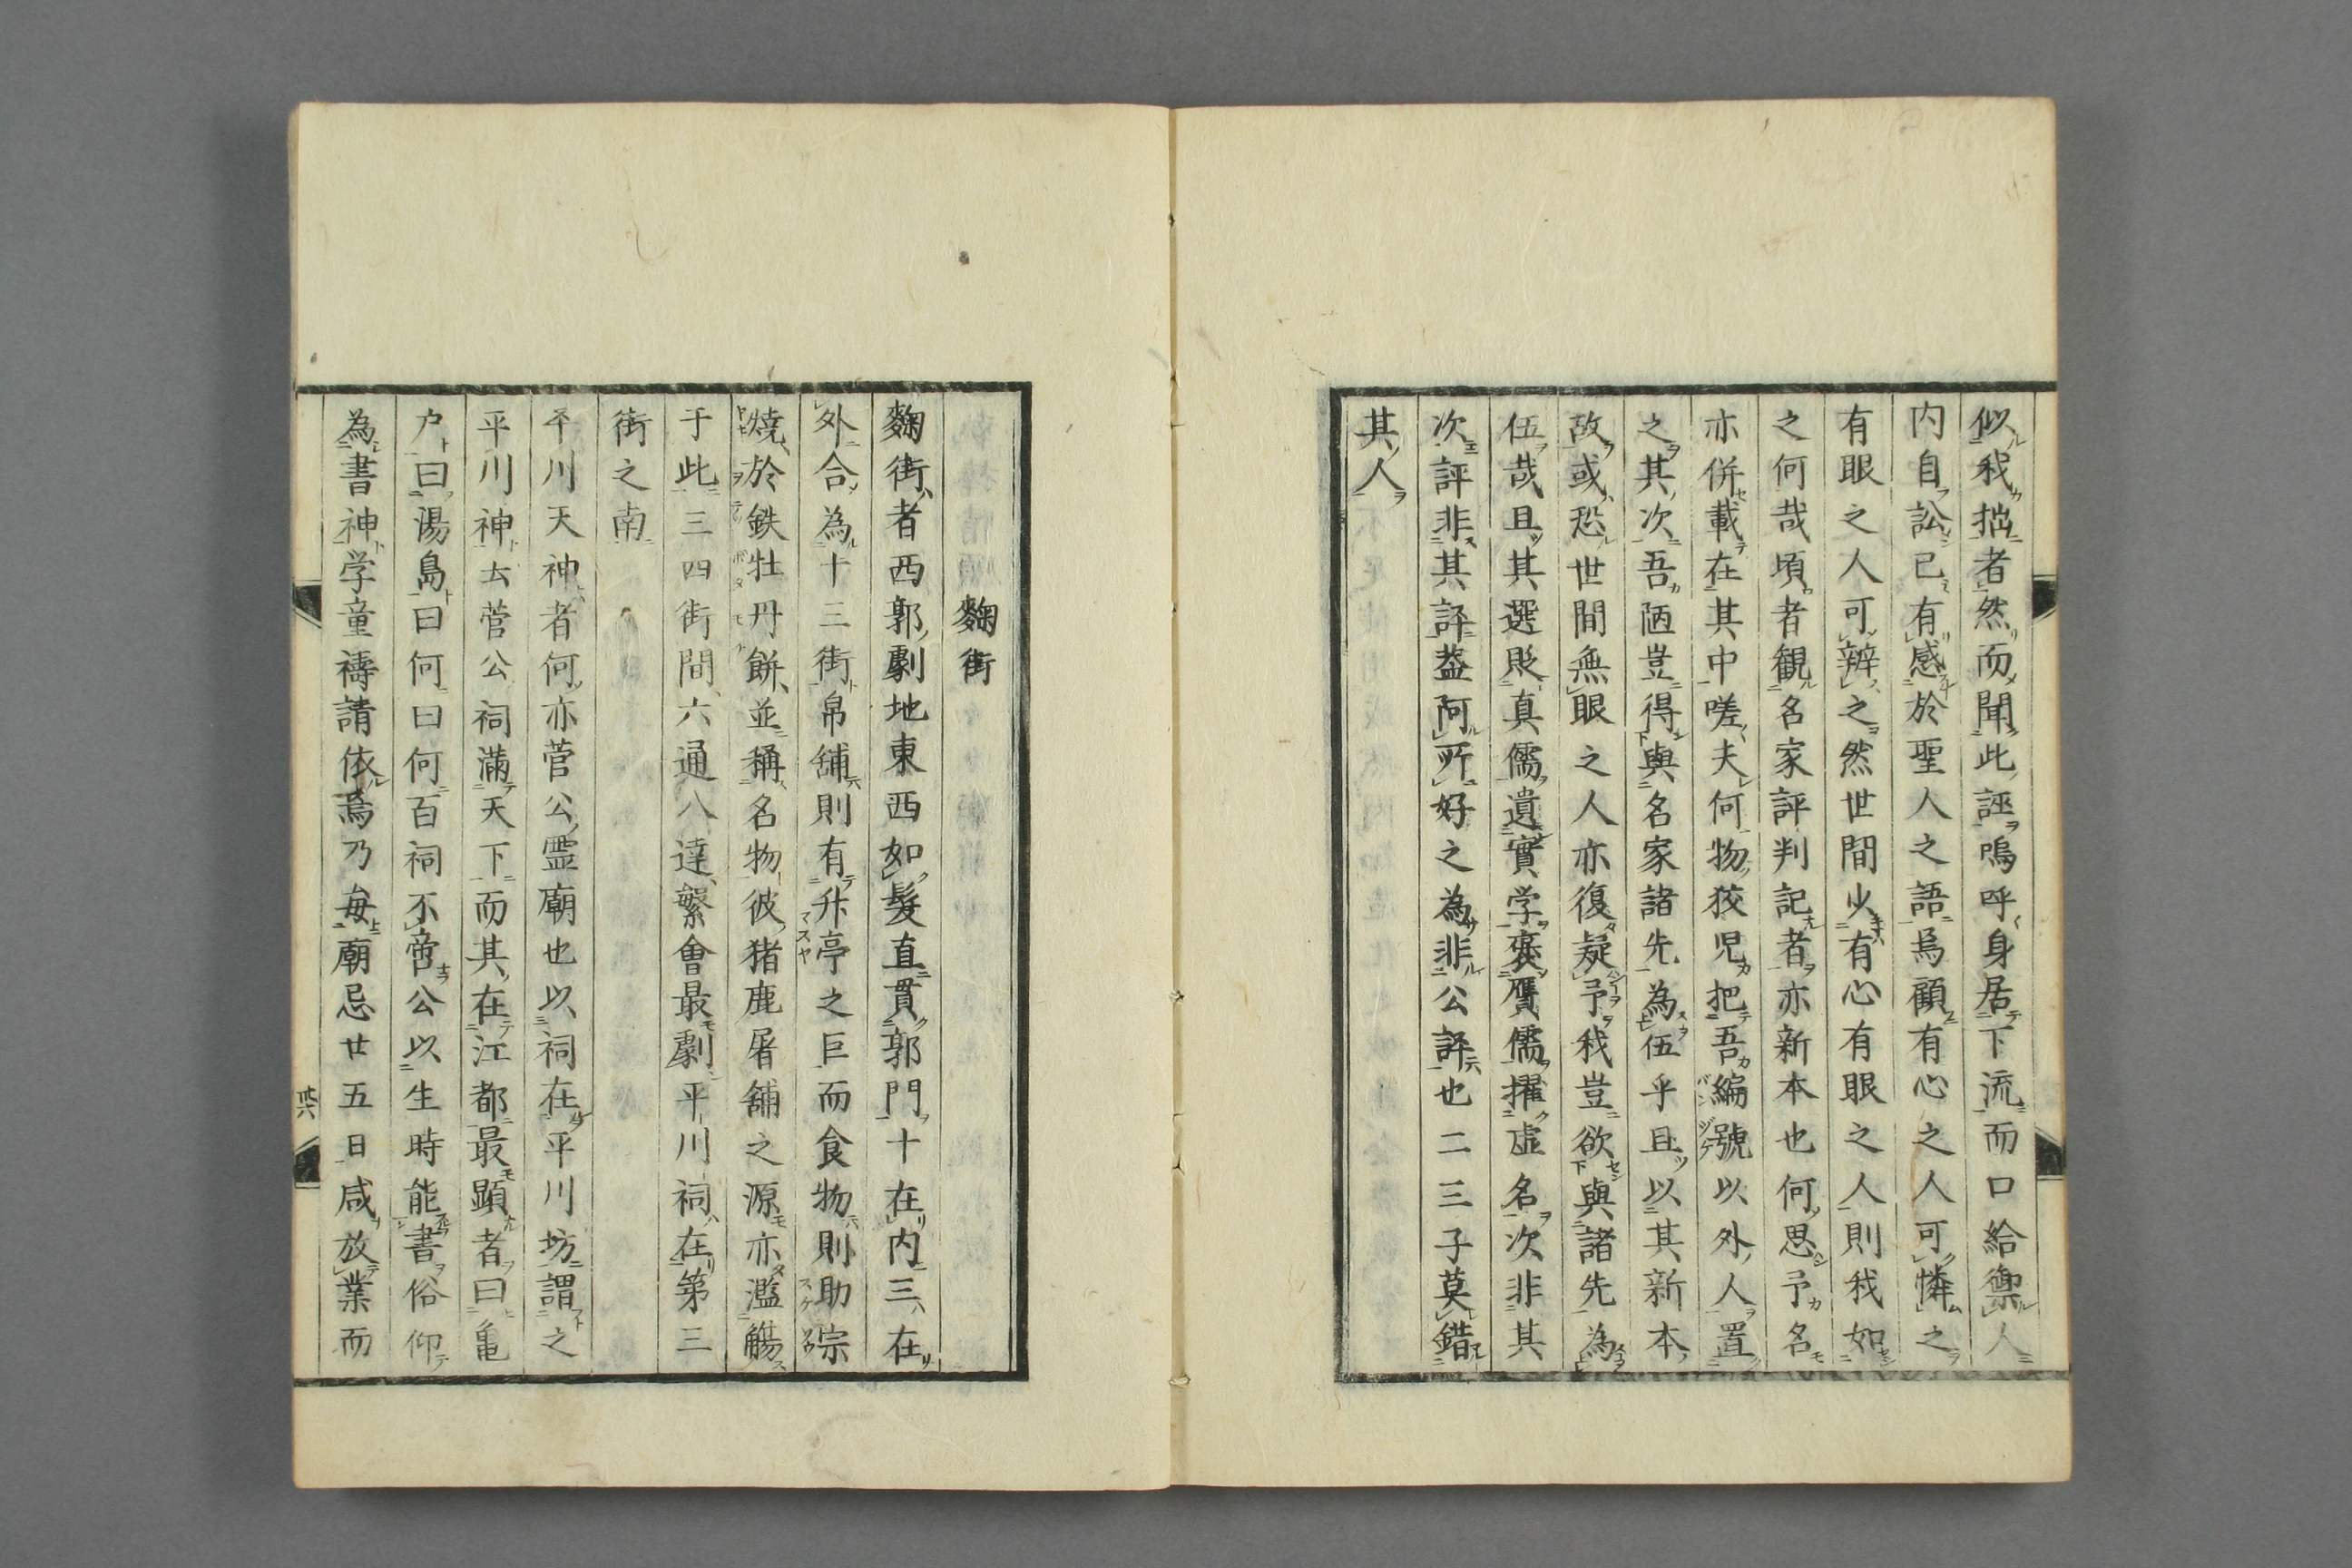 似我拙者然而聞此誣嗚呼身居下流而口給禦人
内自訟已有感於聖人之語焉顧有心之人可憐之
有眼之人可辨之然世間少有心有眼之人則我如
之何哉頃者観名家評判記者亦新本也何思予名
亦併載在其中嗟夫何物狡児把吾編號以外人置
之其次吾陋豈得與名家諸先為伍乎且以其新本
故或恐世間無眼之人亦復疑予我豈欲與諸先為
伍哉且其選貶真儒遺實学褒贋儒擢虚名次非其
次評非其評蓋阿所好之為非公評也二三子莫錯
其人
麴街
麴街者西郭劇地東西如髪直貫郭門十在内三在
外合為十三街帛舗則有升亭之巨而食物則助宗
燒於鉄牡丹餅並稱名物彼猪鹿屠舗之源亦濫觴
于此三四街間六通八達繁會最劇平川祠在第三
街之南
平川天神者何亦菅公霊廟也以祠在平川坊謂之
平川神云菅公祠満天下而其在江都最顕者曰亀
户曰湯島曰何曰何百祠不啻公以生時能書俗仰
為書神学童禱請依焉乃毎廟忌廿五日咸放業而